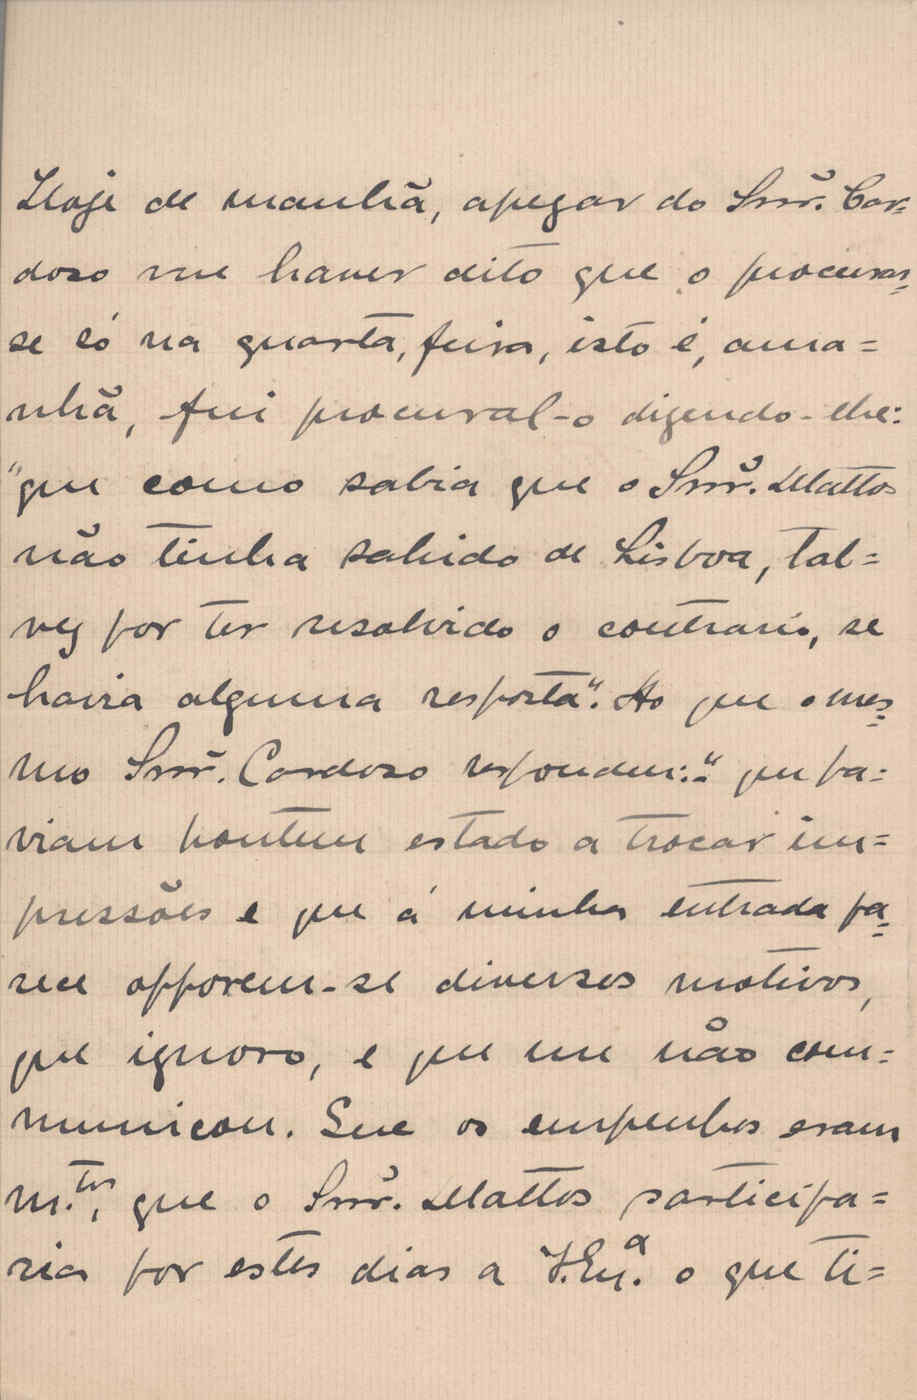 Hoje de manhã, apezar do Snr. Car=
dozo me haver dito que o procuras=
se só na quarta, feira, isto é, ama=
nhã, fui procural-o dizendo-lhe:
"que como sabia que o Snr. Mattos
não tinha sahido de Lisboa, tal=
vez por ter resolvido o contrario, se
havia alguma resposta". Ao que o mes=
mo Snr. Cardozo respondeu: "que ha=
viam hontem estado a trocar im=
pressões e que á minha entrada pa=
rece opporem-se diversos motivos,
que ignoro, e que me não com=
municou. Que os empenhos eram
m.tos, que o Snr. Mattos participa=
ria por estes dias a V.Ex.a o que ti=